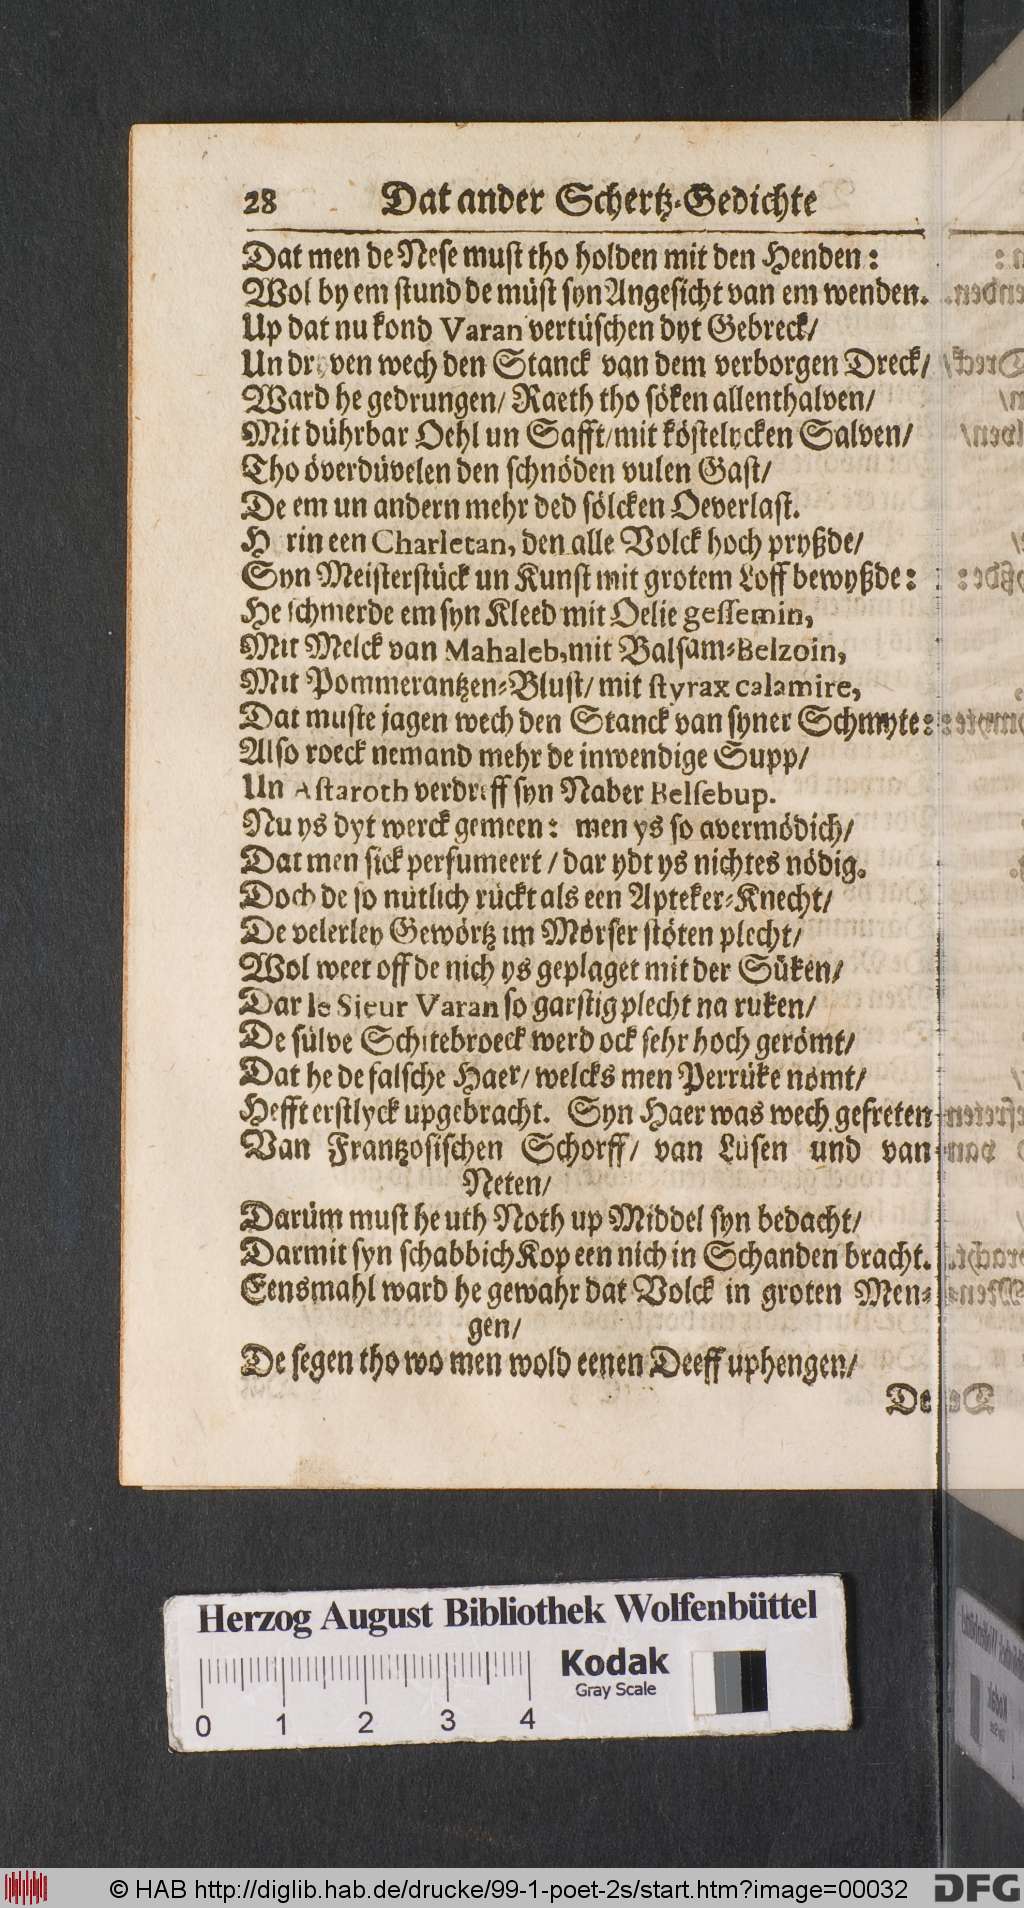 28 Dat ander Schertz-Gedichte
Dat men de Nese must tho holden mit den Henden:
Wol by em stund de müst syn Angesicht van em wenden.
Up dat nu kond Varan vertüschen dyt Gebreck/
Un dryven wech den Stanck van dem verborgen Dreck/
Ward he gedrungen/ Raeth tho söken allenthalven/
Mit dührbar Oehl un Safft/mit köstelycken Salven/
Tho överdüvelen den schnöden vulen Gast/
De em un andern mehr ded sölcken Oeverlast.
rin een Charletan, den alle Volck hoch pryßde/
Syn Meisterstück un Kunst mit grotem Loff bewyßde:
He schmerde em syn Kleed mit Oelie gessemin,
Mit Melck van Mahaleb, mit Balsam-Belzoin,
Mit Pommerantzen-Blust/ mit styrax calamire,
Dat muste jagen wech den Stanck van syner Schmyte:
Also roeck nemand mehr de inwendige Supp/
Un Astaroth verdreff syn Naber Belsebup.
Nu ys dyt werck gemeen: men ys so avermödich/
Dat men sick perfumeert / dar ydt ys nichtes nödig.
Doch de so nütlich rückt als een Apteker-Knecht/
De velerley Gewörtz im Mörser stöten plecht/
Wol weet off de nich ys geplaget mit der Süken/
Dar le Sieur Varan so garstig plecht na ruken/
De sülve Schitebroeck werd ock sehr hoch gerömt/
Dat he de falsche Haer/ welcks men Perrüke nömt/
Hefft erstlyck upgebracht. Syn Haer was wech gefreten
Van Frantzosischen Schorff/ van Lüsen und van
Neten/
Darüm must he uth Noth up Middel syn bedacht/
Darmit syn schabbich Kop een nich in Schanden bracht.
Eensmahl ward he gewahr dat Volck in groten Men-
gen/
De segen tho wo men wold eenen Deeff uphengen/
De
Herzog August Bibliothek Wolfenbüttel
Kodak
Gray Scale
0 1 2 3 4
© HAB http://diglib.hab.de/drucke/99-1-poet-2s/start.htm?image=00032
DFG